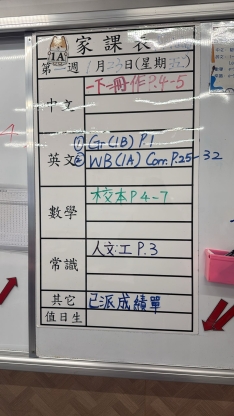 家課表
1A
第一週 1月23日(星期五)
中文 一下二冊作P.4-5
英文 ① Gr(1B) P.1
② WB(1A) Corr. P.25-32
數學 校本P.4-7
常識 人文:工P.3
其它 已派成績單
值日生